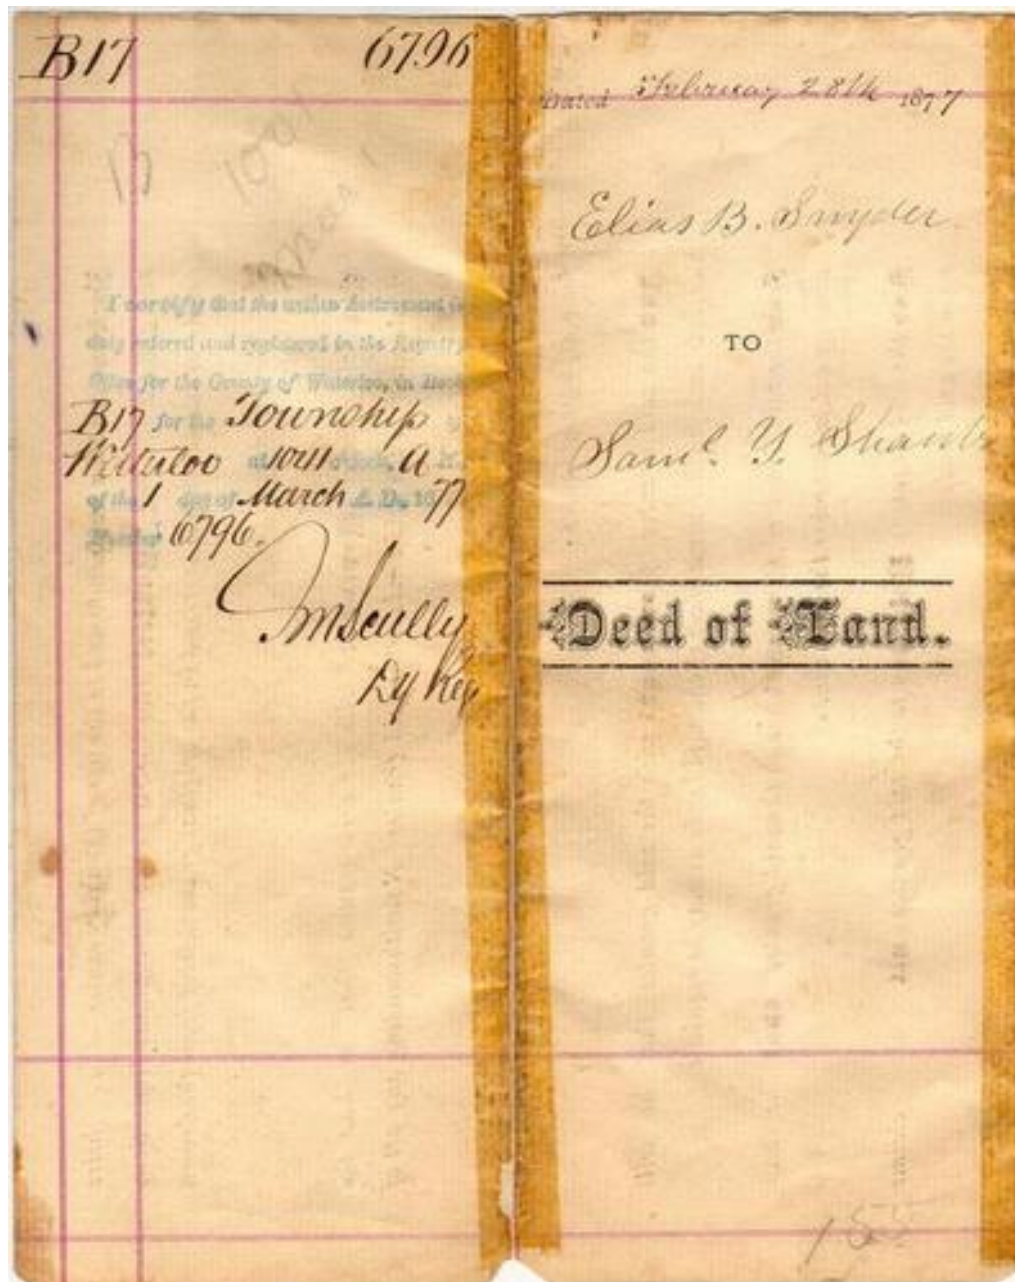 B17 6796
17
I certify that the within Instrument is
duly entered and registered in the Registry
Office for the County of Waterloo, in Book
B17 for the Township
Waterloo at o'clock, A M.
of the 1 day of March A. D., 18 77
Number 6796.
Scully
Dy Reg
Dated February 28th 1877
Elias B. Snyder
TO
Saml. Y. Shantz
Deed of Land.